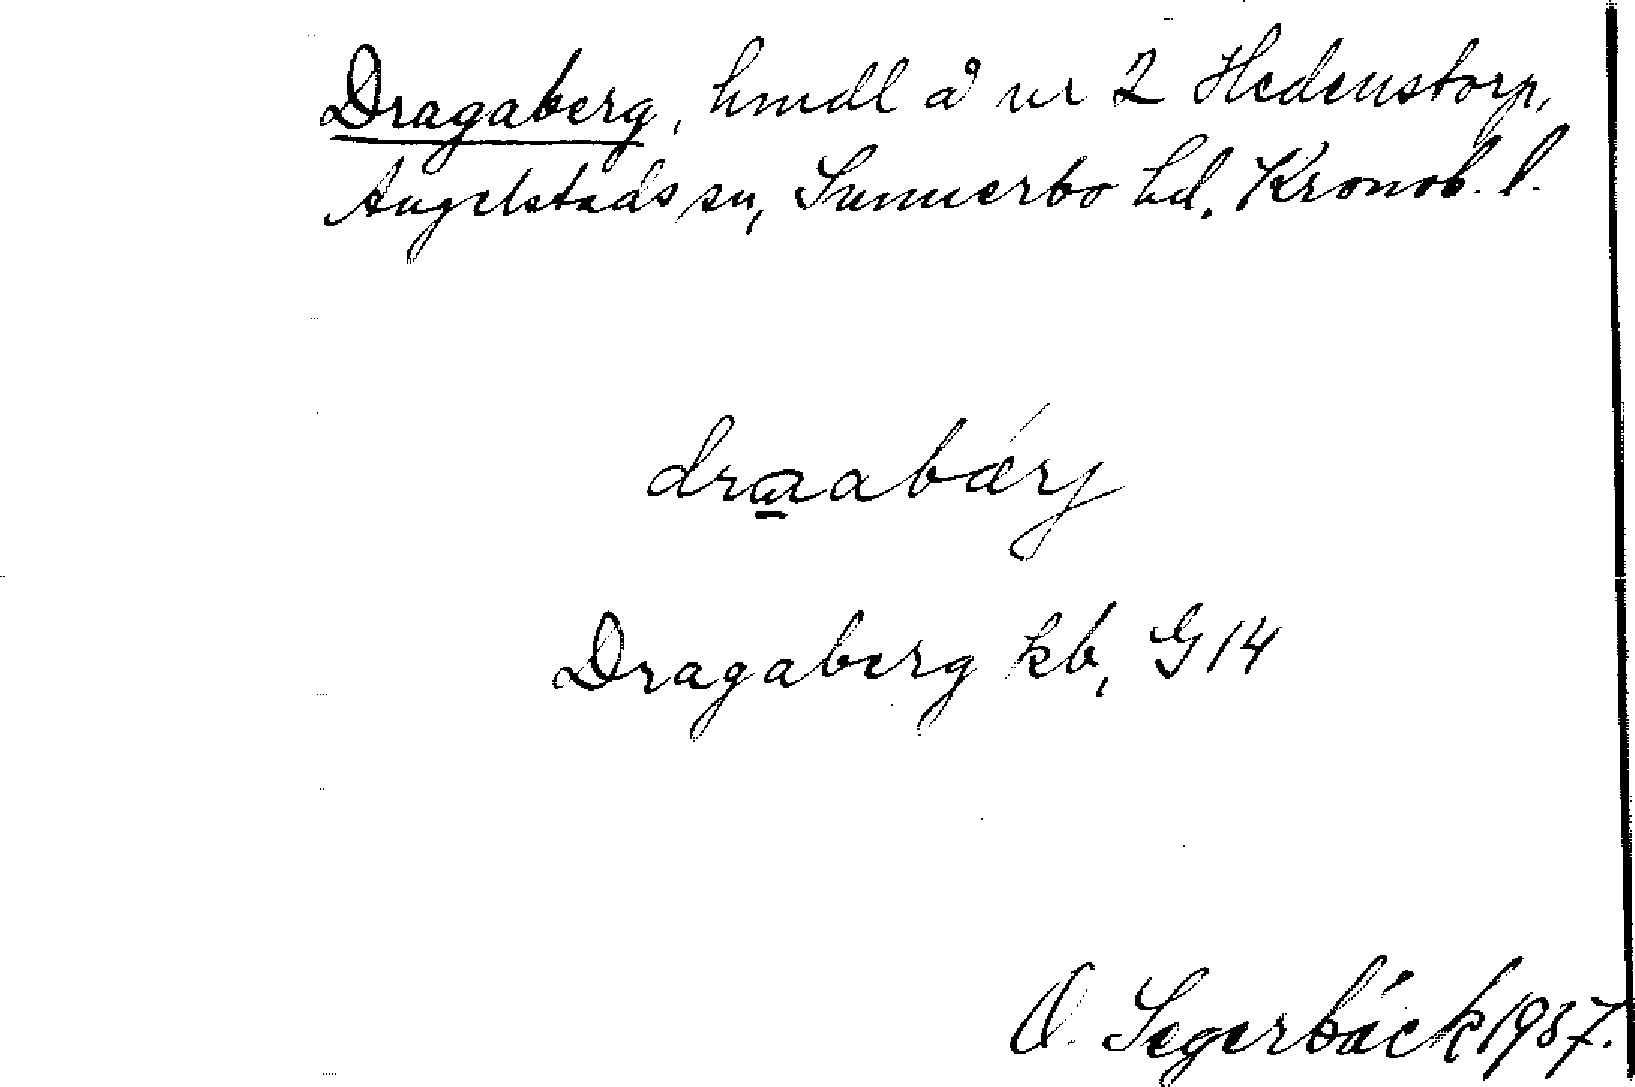 Dragaberg, hmdl å nr 2 Hedenstorp,
Angelstads sn, Sunnerbo hd, Kronob. l.
draabærj
Dragaberg kb, G 14
O. Segerbäck 1937.